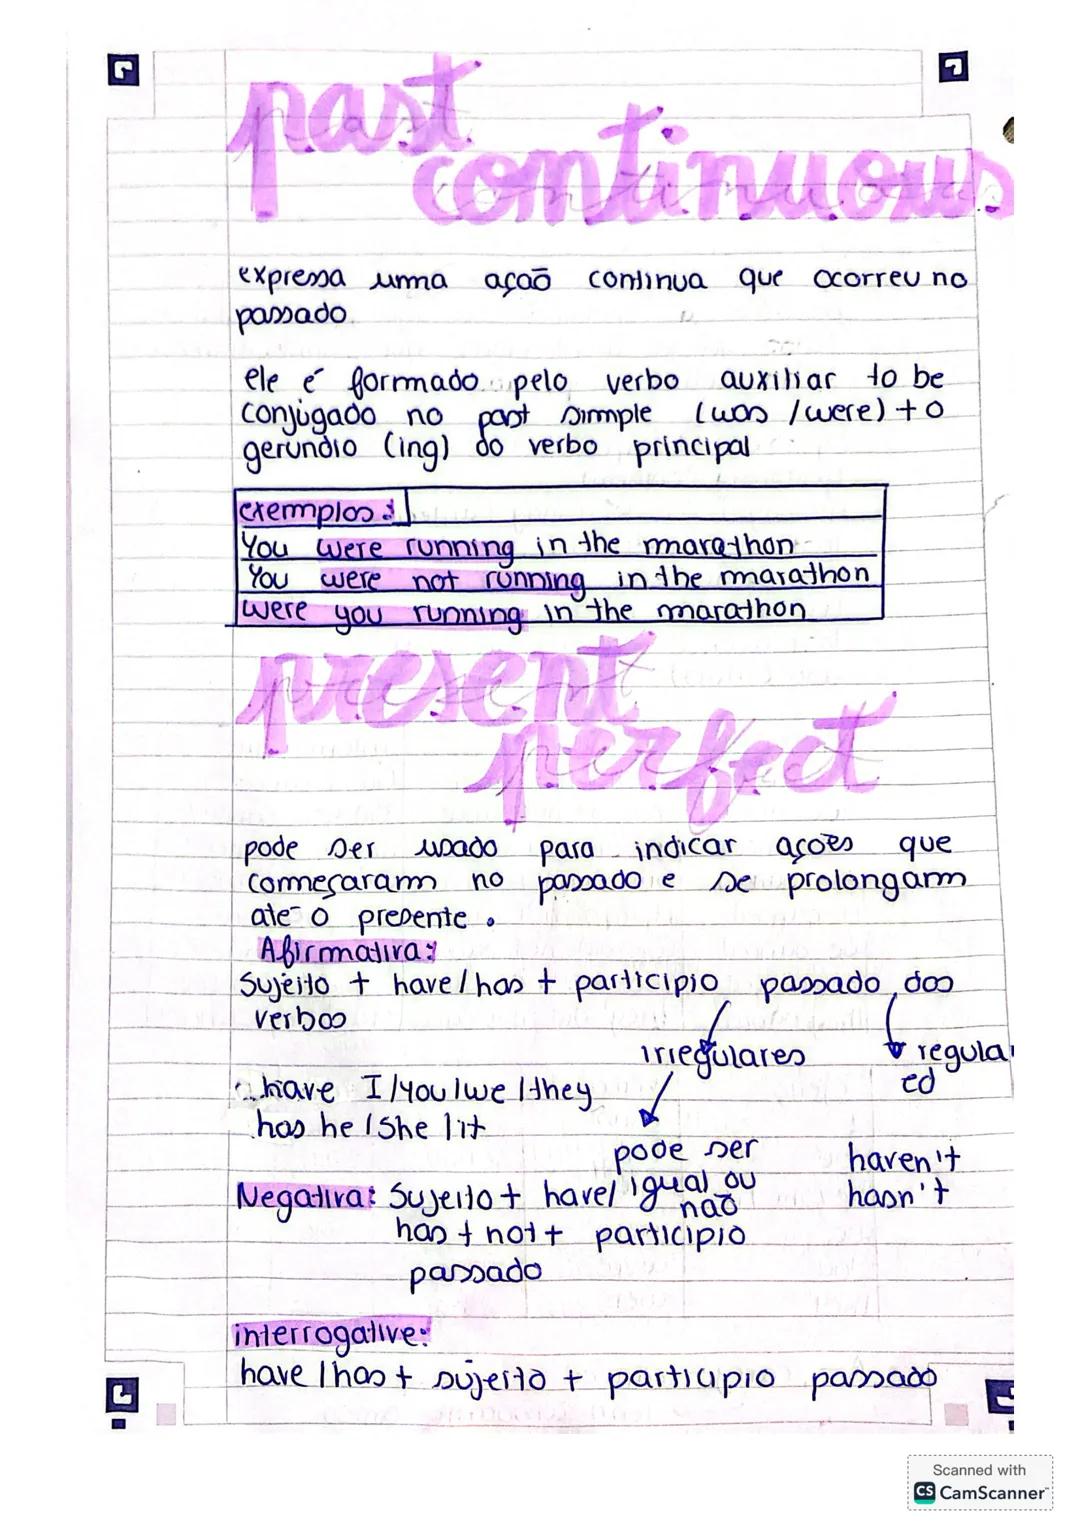 past
continuous
expressa uma ação continua que ocorreu no
passado.
ele é formado pelo verbo auxiliar to be
conjugado no past simple (was / were) + o
gerundio (ing) do verbo principal
exemplos:
You were running in the marathon
You were not running in the marathon
were you running in the marathon
present
perfect
pode ser usado para indicar ações que
começaram no passado e se prolongam
até o presente.
Afirmativa:
Sujeito + have/has + participio passado dos
verbos
irregulares
regula
ed
have I/you/we/they
has he/She/it
pode ser
igual ou
não
haven't
hasn't
Negativa: Sujeito + have/
has + not + participio
passado
interrogative:
have/has + sujeito + participio passado
Scanned with
CS CamScanner